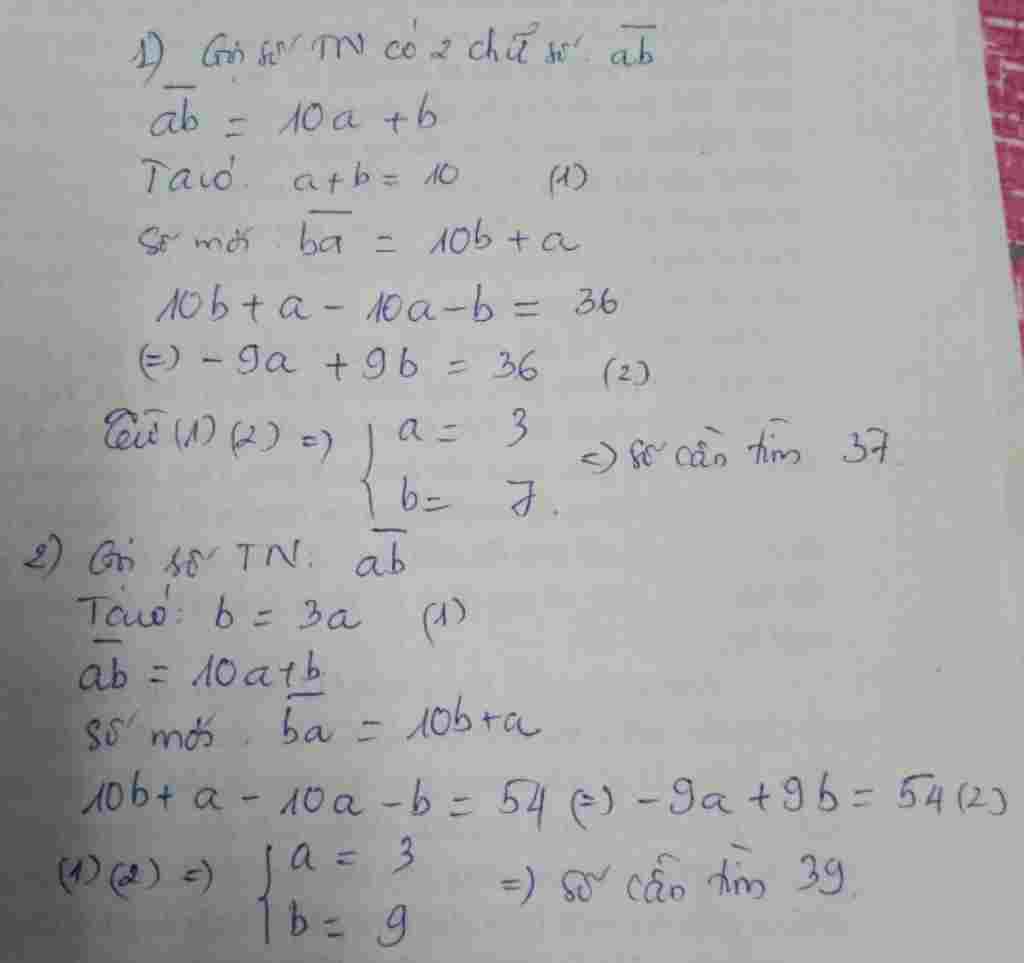 1) Gọi số TN có 2 chữ số a̅b̅
a̅b̅ = 10a + b
Ta có. a + b = 10 (1)
Số mới. b̅a̅ = 10b + a
10b + a - 10a - b = 36
(=) - 9a + 9b = 36 (2)
Từ (1) (2) =) { a = 3 =) số cần tìm 37
b = 7.
2) Gọi số TN: a̅b̅
Ta có: b = 3a (1)
a̅b̅ = 10a + b
Số mới. b̅a̅ = 10b + a
10b + a - 10a - b = 54 (=) - 9a + 9b = 54 (2)
(1) (2) =) { a = 3 =) số cần tìm 39.
b = 9